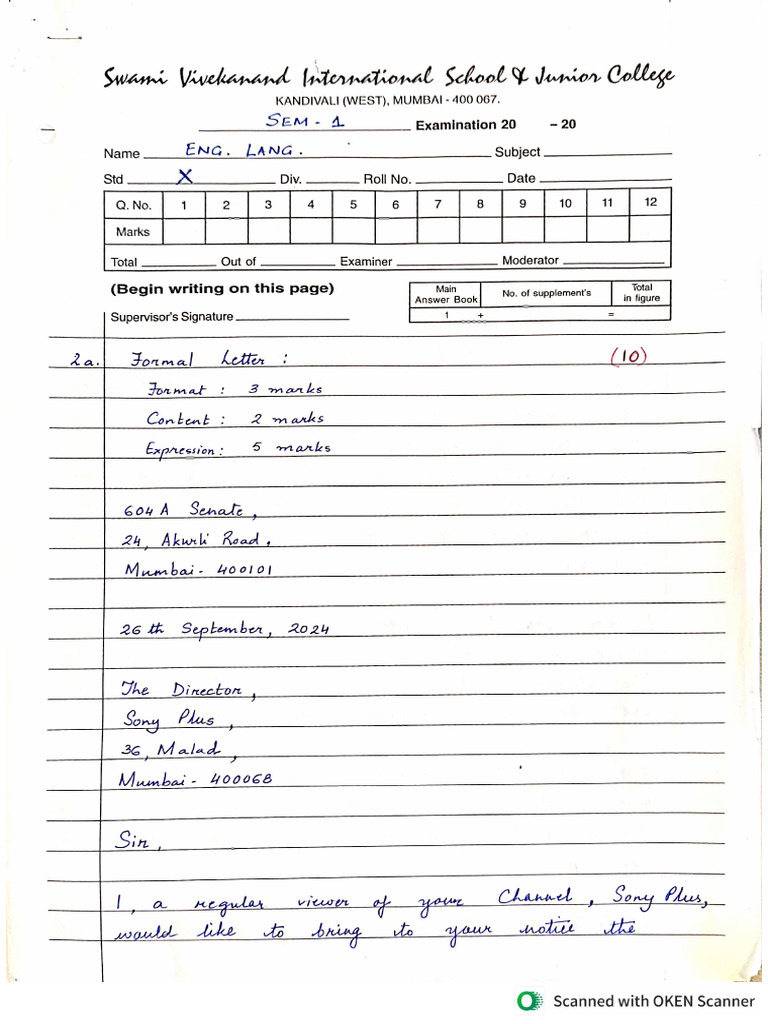 Swami Vivekanand International School & Junior College
KANDIVALI (WEST), MUMBAI - 400 067.
SEM - 1 Examination 20 - 20
Name ENG. LANG. Subject
Std X Div. Roll No. Date
Q. No. 1 2 3 4 5 6 7 8 9 10 11 12
Marks
Total Out of Examiner Moderator
(Begin writing on this page)
Main Answer Book No. of supplement's Total in figure
Supervisor's Signature 1 + =
2a. Formal Letter : (10)
Format : 3 marks
Content : 2 marks
Expression : 5 marks
604 A Senate,
24, Akurli Road,
Mumbai - 400101
26th September, 2024
The Director,
Sony Plus,
36, Malad,
Mumbai - 400068
Sir,
I, a regular viewer of your Channel, Sony Plus,
would like to bring to your notice the
Scanned with OKEN Scanner